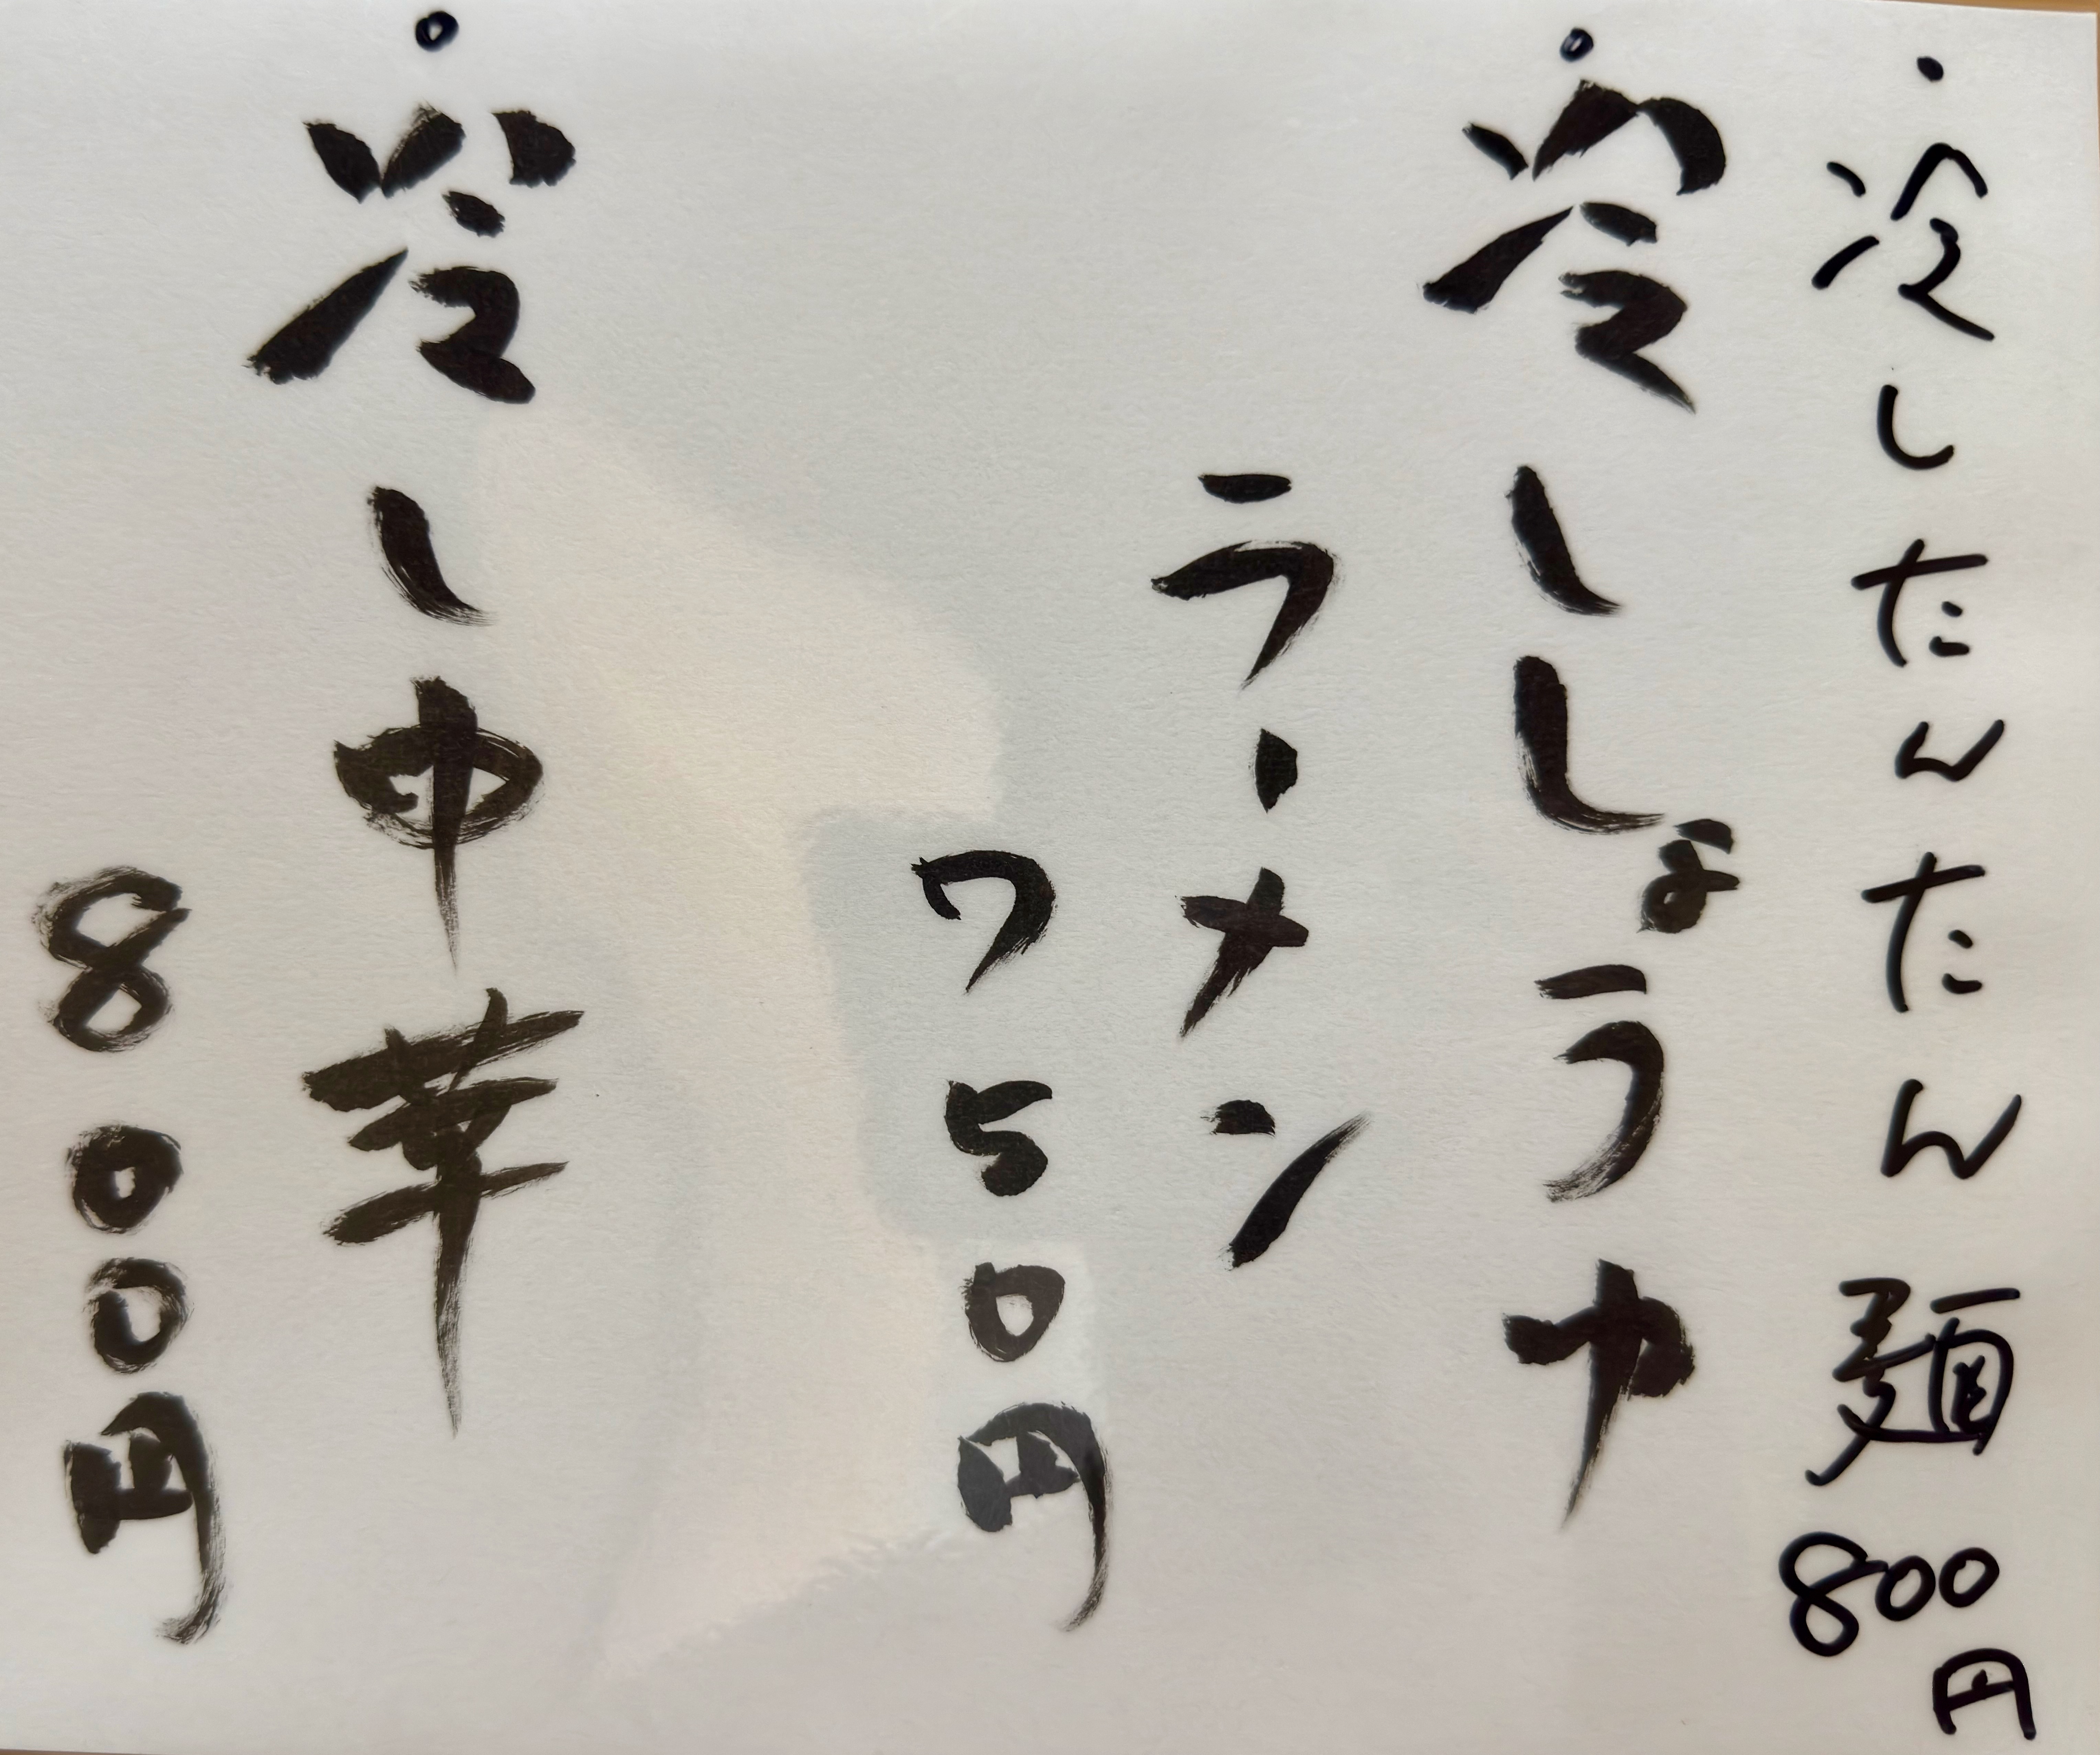 ・冷したんたん麺800円
。冷ししょうゆ
ラーメン
750円
。冷し中華
800円